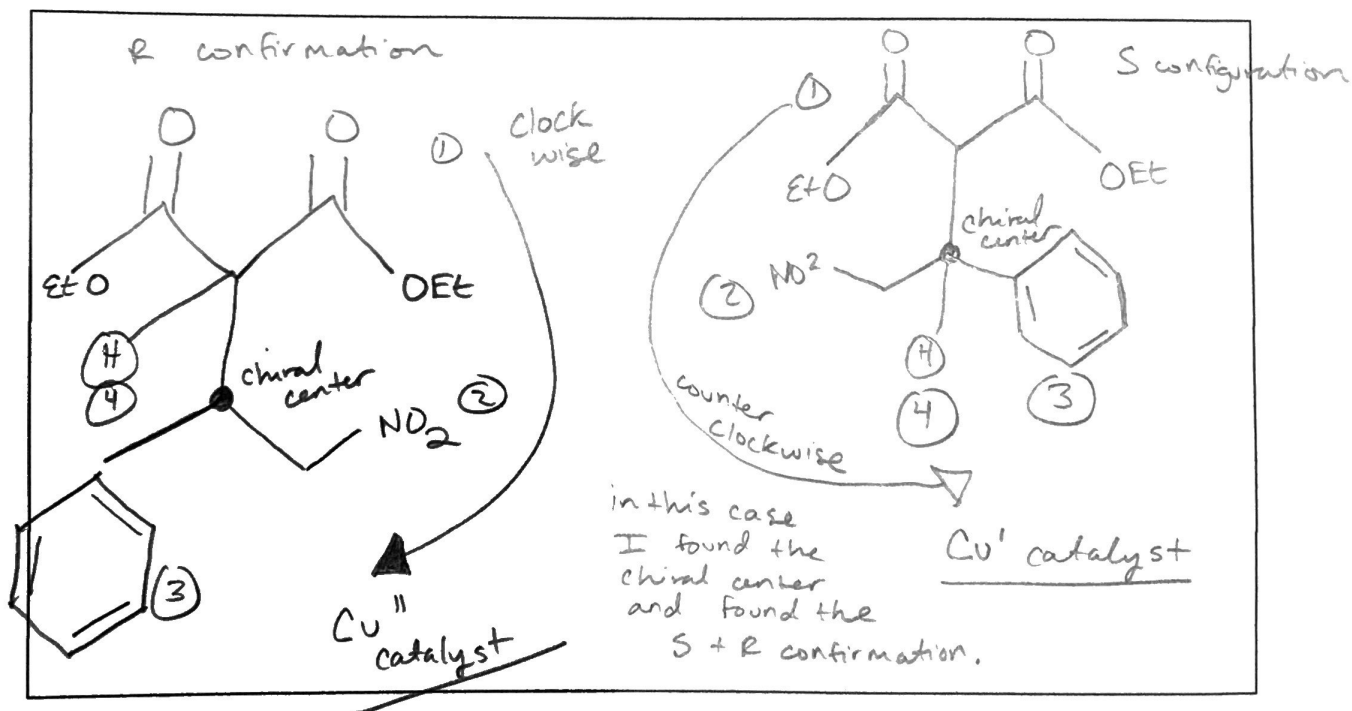 R confirmation
O O
① clock
wise
EtO OEt
H
4
chiral
center
NO₂ ②
③
Cu"
catalyst
S configuration
O O
①
EtO OEt
chiral
center
② NO²
H
④
③
counter
clockwise
in this case
I found the
chiral center
and found the
S + R confirmation.
Cu' catalyst